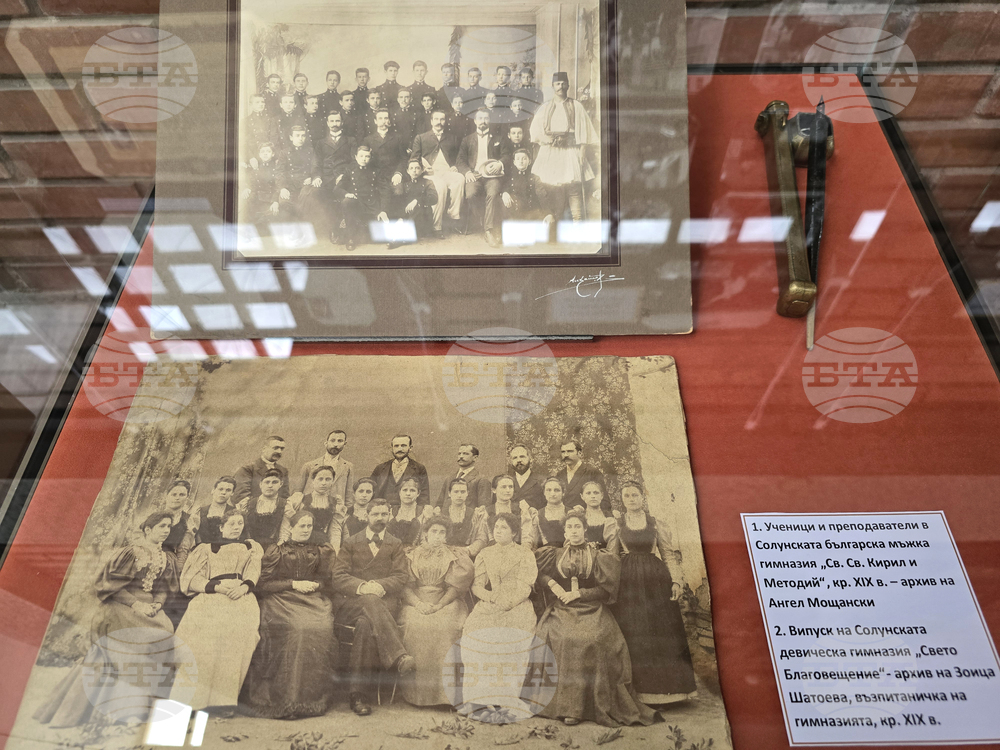 БТА
БТА
БТА
БТА
БТА
БТА
БТА
1. Ученици и преподаватели в
Солунската българска мъжка
гимназия „Св. Св. Кирил и
Методий“, кр. XIX в. – архив на
Ангел Мощански
2. Випуск на Солунската
девическа гимназия „Свето
Благовещение“- архив на Зоица
Шатоева, възпитаничка на
гимназията, кр. XIX в.
БТА